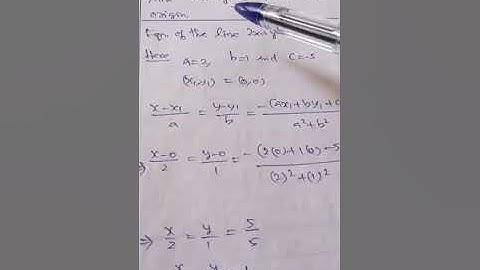 origin.
Eqn. of the line 2x+y
Here a=2, b=1 and c=-5
(x₁,y₁) = (0,0)
x-x₁/a = y-y₁/b = -(ax₁+by₁+c/a²+b²
⇒ x-0/2 = y-0/1 = -(2(0)+1(0)-5/(2)²+(1)²
⇒ x/2 = y/1 = 5/5
x y 1